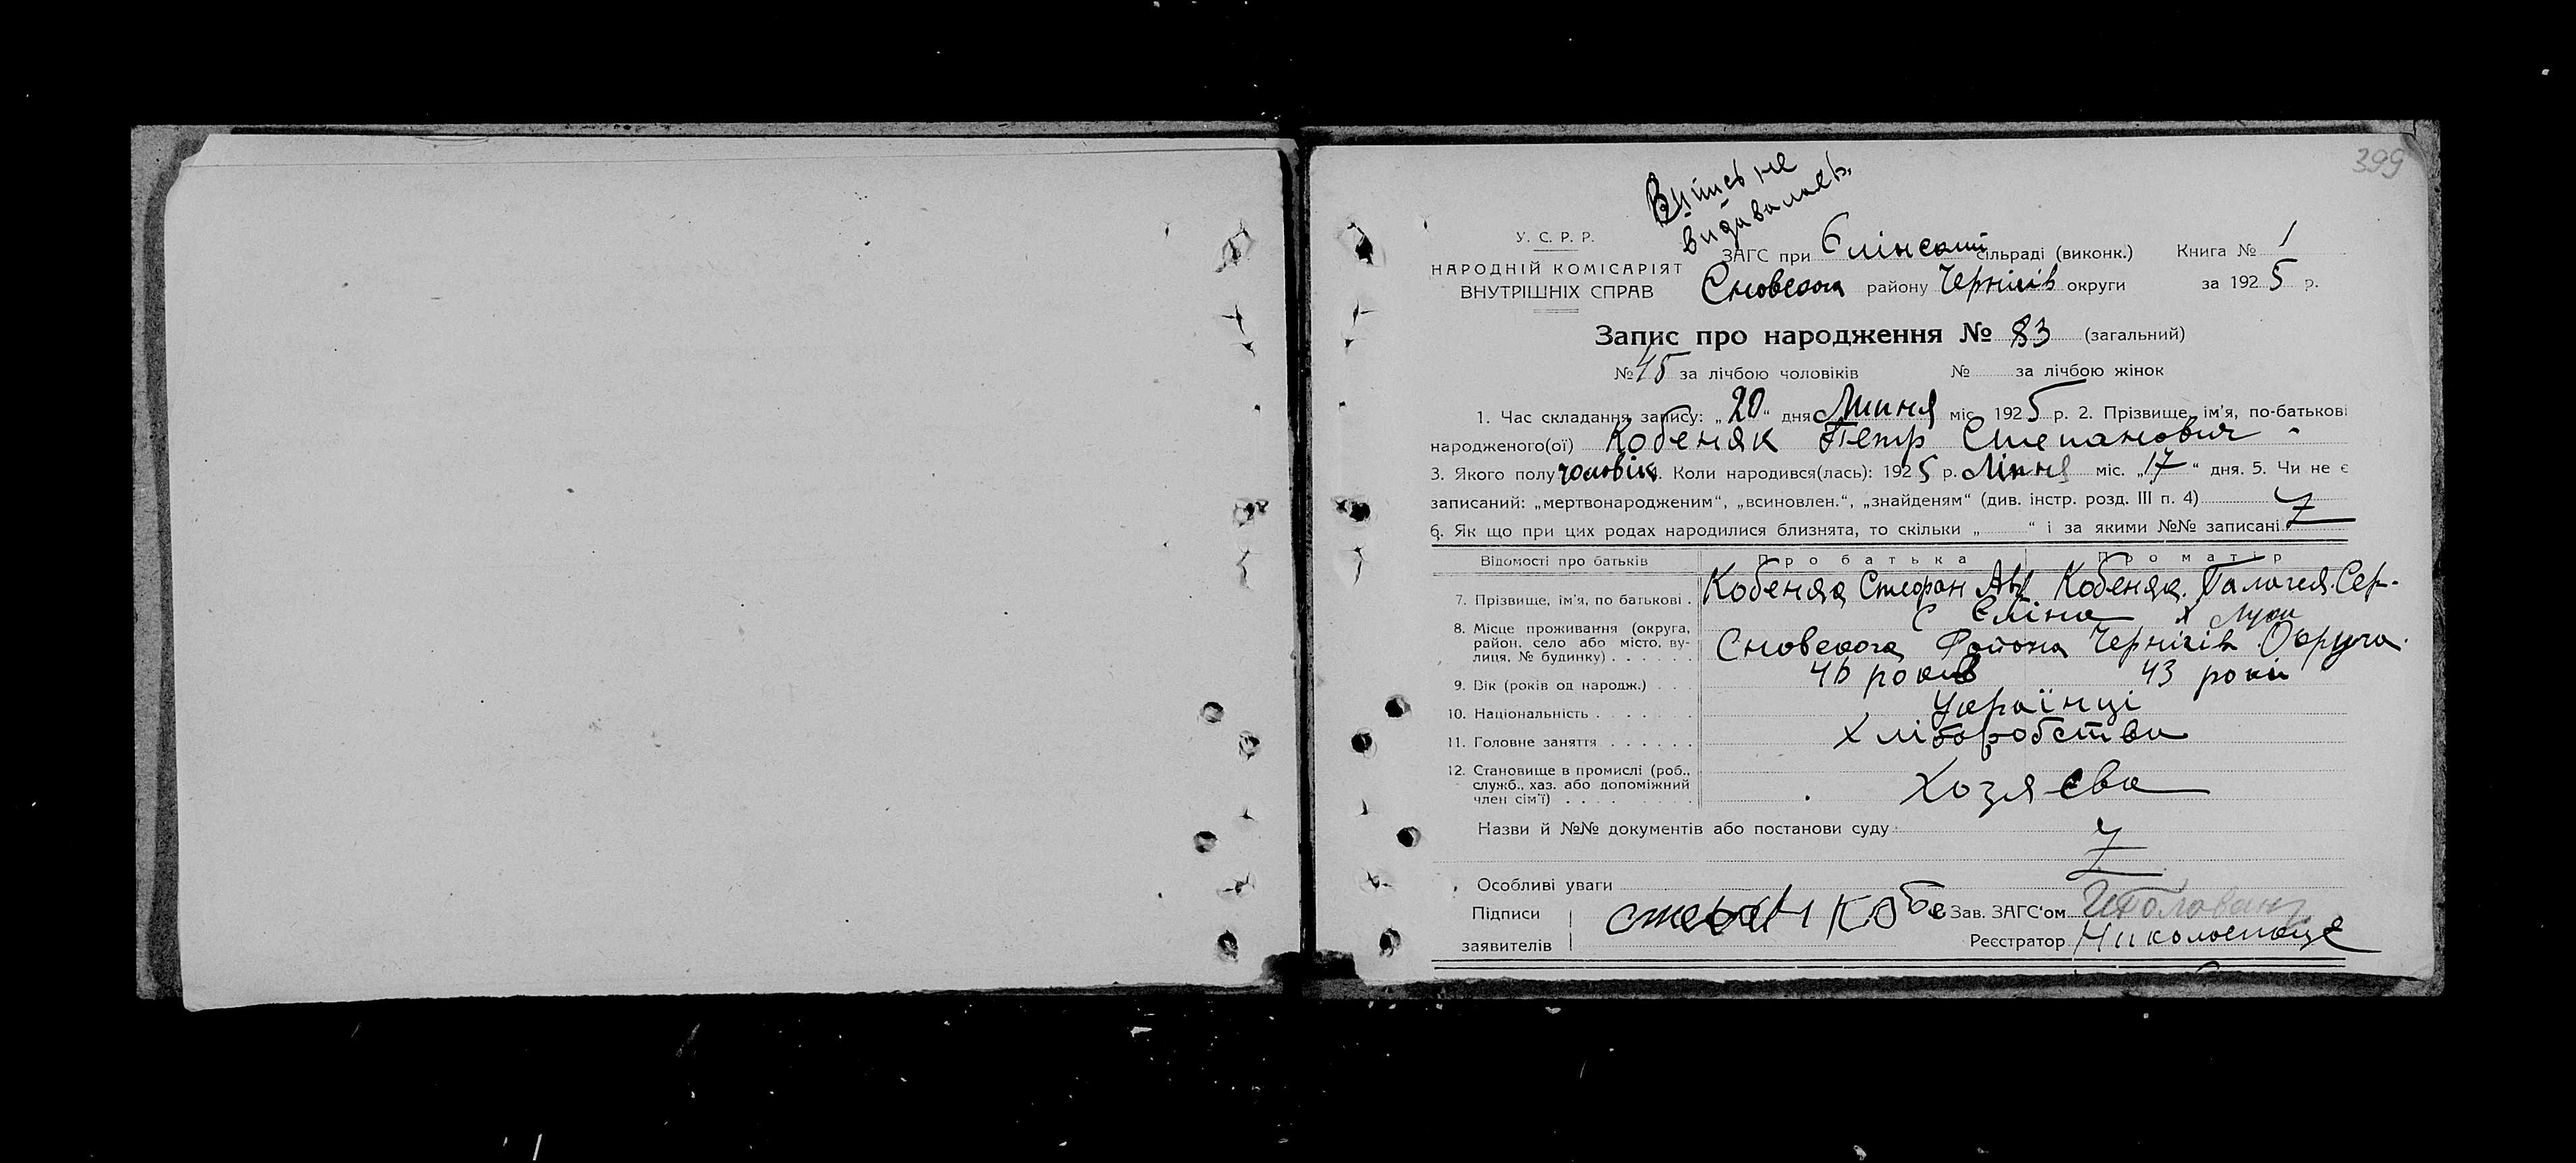 399
Випись не
видавалась.
У. С. Р. Р.
НАРОДНІЙ КОМІСАРІЯТ
ВНУТРІШНІХ СПРАВ
ЗАГС при Єлінській сільраді (виконк.) Книга № 1
Сновского району Чернігів округи за 1925 р.
Запис про народження № 83 (загальний)
№ 45 за лічбою чоловіків № за лічбою жінок
1. Час складання запису: „20“ дня Липня міс. 1925 р. 2. Прізвище, ім'я, по-батькові
народженого(ої) Кобеняк Петр Степанович
3. Якого полу чоловік. Коли народився(лась): 1925 р. Липня міс. „17“ дня. 5. Чи не є
записаний: „мертвонародженим“, „всиновлен.“, „знайденям“ (див. інстр. розд. III п. 4)
6. Як що при цих родах народилися близнята, то скільки „ “ і за якими №№ записані
Відомості про батьків Про батька Про матір
7. Прізвище, ім'я, по батькові. Кобеняк Стефан Кобеняк Палагея Сер-
8. Місце проживання (округа, район, село або місто, вулиця, № будинку) с Єліно
Сновского Района Чернігів Округа
9. Вік (років од народж.) 46 років 43 роки
10. Національність Українці
11. Головне заняття Хліборобство
12. Становище в промислі (роб., служб., хаз. або допоміжний член сім'ї) Хозяєва
Назви й №№ документів або постанови суду:
Особливі уваги
Підписи
заявителів
Стефан Кобе
Зав. ЗАГС'ом
Реєстратор